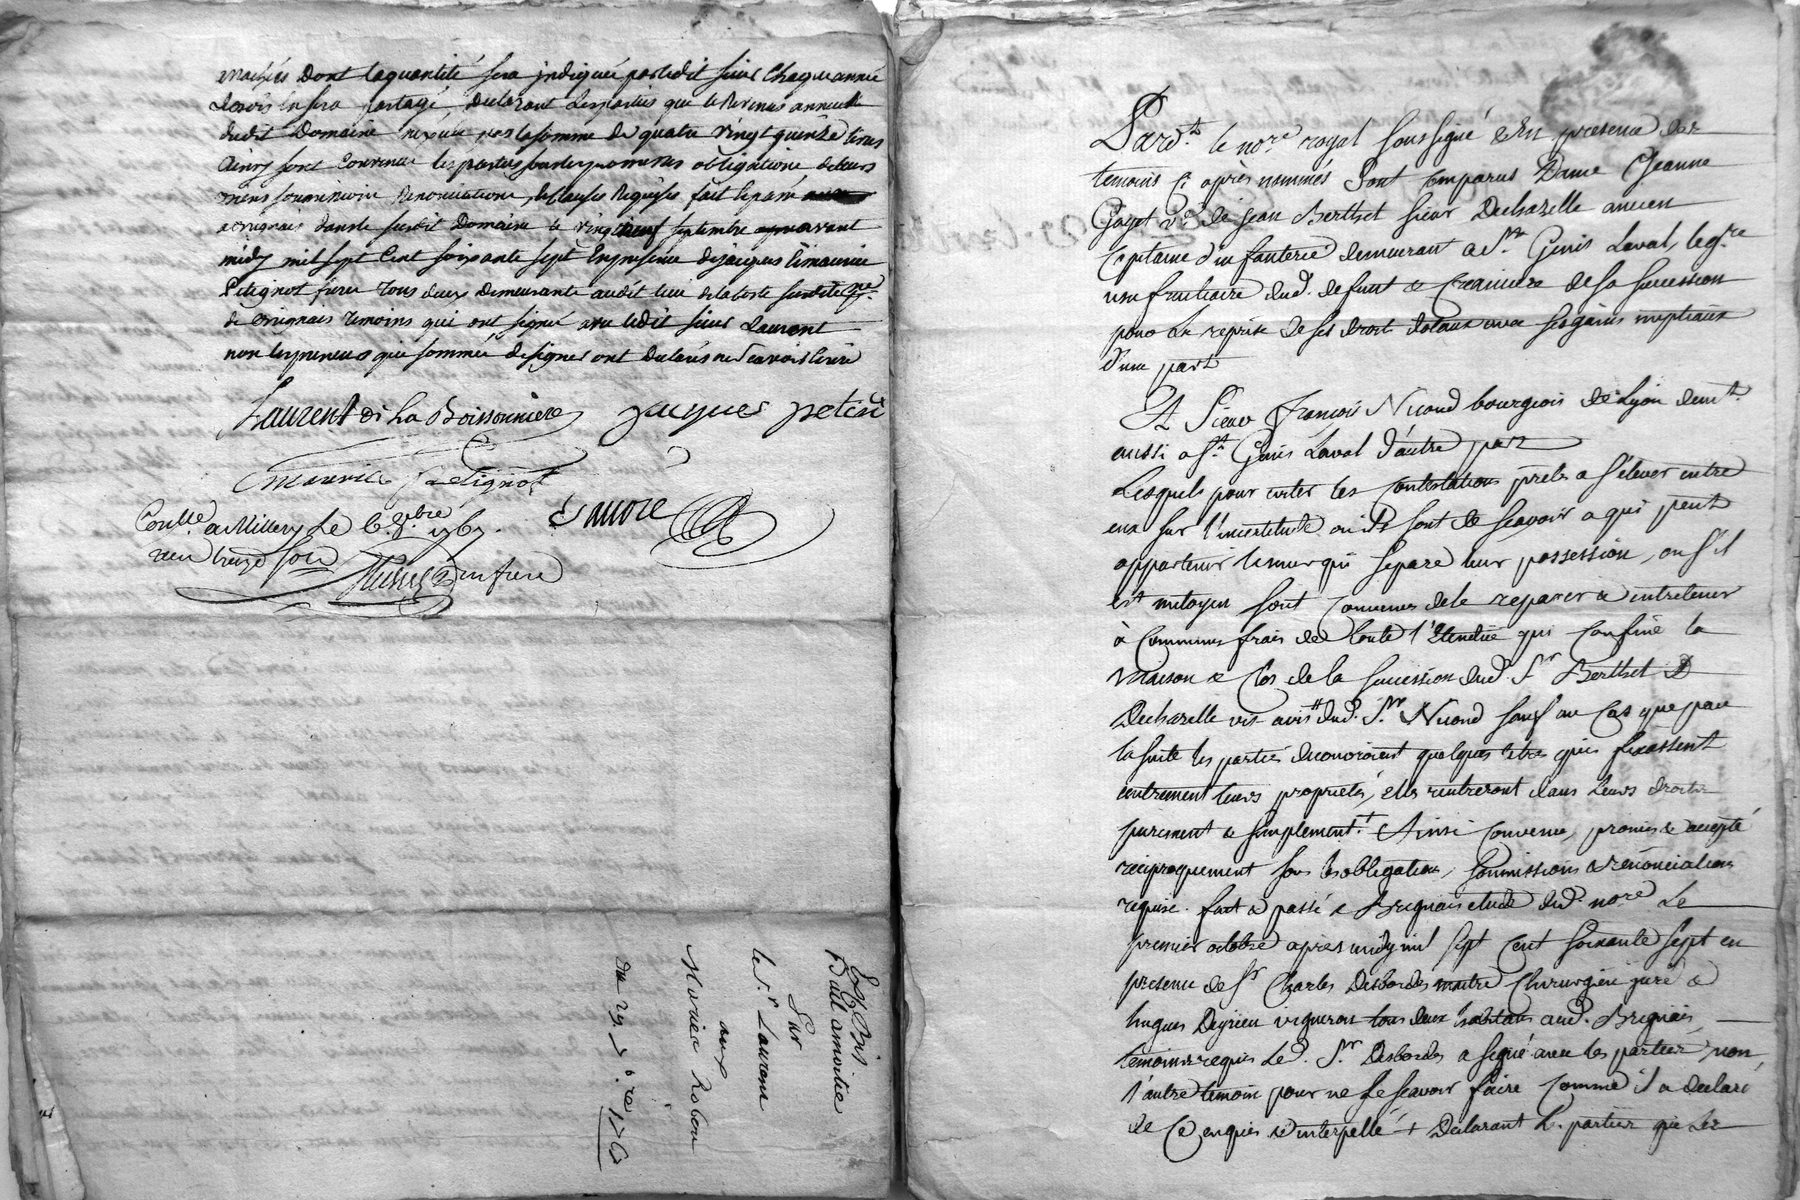 marchés Dont la quantité sera indiquée par ledit sieur chaque année
le bois en sera partagé declarant les parties que le Revenus annuel
dudit Domaine n'exede pas la somme de quatre vingt quinze livres
ainsy sont convenu les parties sous les promesses obligations de leurs
biens soumission Renonciations, & clauses Requises fait & passé
a Brignais dans le susdit Domaine le vingt neuf septembre avant
midy mil sept cent soixante sept En presence de jacques & maurice
Petignot freres tous deux demeurants audit lieu de la coste susdite psse.
de Brignais temoins qui ont signé avec ledit sieur Laurent
non les preneurs que sommés de signer ont declarés ne scavoir écrire
Laurent de La Boissonniere jacques petit
Maurice Petignot
Conlle. a Millery Le 6. 8.bre 1767.
reçu treize sols
Par dt. le nore royal soussigné & En presence des
temoins Ci après nommés Sont Comparus Dame Jeanne
Gayet ve. de Jean Berthet sieur Dechazelle ancien
Capitaine d'infanterie demeurant a St. Genis Laval, legre
usufruitiaire dud. defunt & Creanciere de sa succession
pour la reprise de ses droits dotaux avec ses gains nuptiaux
d'une part
Et Sieur François Nicoud bourgeois de Lyon demt.
aussi a St. Genis Laval d'autre part
Lesquels pour eviter les Contestations prets a s'elever entre
eux sur l'incertitude ou ils sont de scavoir a qui peut
appartenir le mur qui separe leur possession, ou s'il
est mitoyen sont convenus de le reparer & entretenir
à Communs frais de toute l'Etendüe qui Confine la
Maison & Clos de la succession dud. Sr Berthet D
Dechazelle vis avis dud. Sr. Nicoud sauf au Cas que par
la suite les parties decouvriroient quelques titres qui fixassent
autrement leurs proprietés, elles rentreront dans leurs droits
purement & simplement. Ainsi Convenu, promis & accepté
reciproquement sous les obligations, soumissions & renonciations
requise. fait & passé a Brignais etude dud. nore Le
premier octobre après midy mil sept cent soixante sept en
presence de Sr Charles Desbordes maitre Chirurgien juré &
hugues Deyrieu vigneron tous deux habitans aud. Brignais,
temoins requis Led. Sr. Desbordes a signé avec les parties, non
l'autre temoin pour ne le scavoir faire comme il a declaré
de Ce enquis & interpellé + Declarant Les parties que les
Bail amoitié
Par
le Sr. Laurent
aux
Mariés Robou
du 29. 7.bre 1767